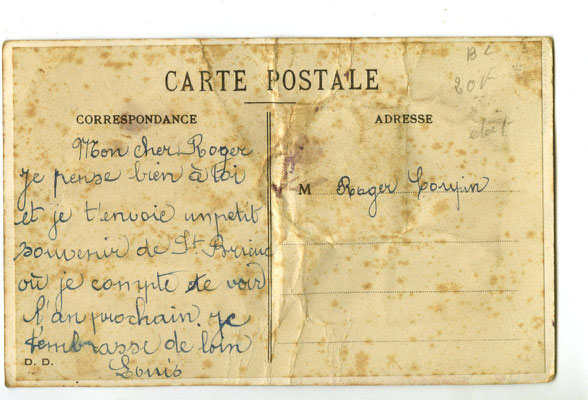 CARTE POSTALE
CORRESPONDANCE
ADRESSE
Mon cher Roger
je pense bien à toi
et je t'envoie un petit
souvenir de St Brieuc
où je compte te voir
l'an prochain je
t'embrasse de loin
Louis
M Roger Coupin
D. D.
20F